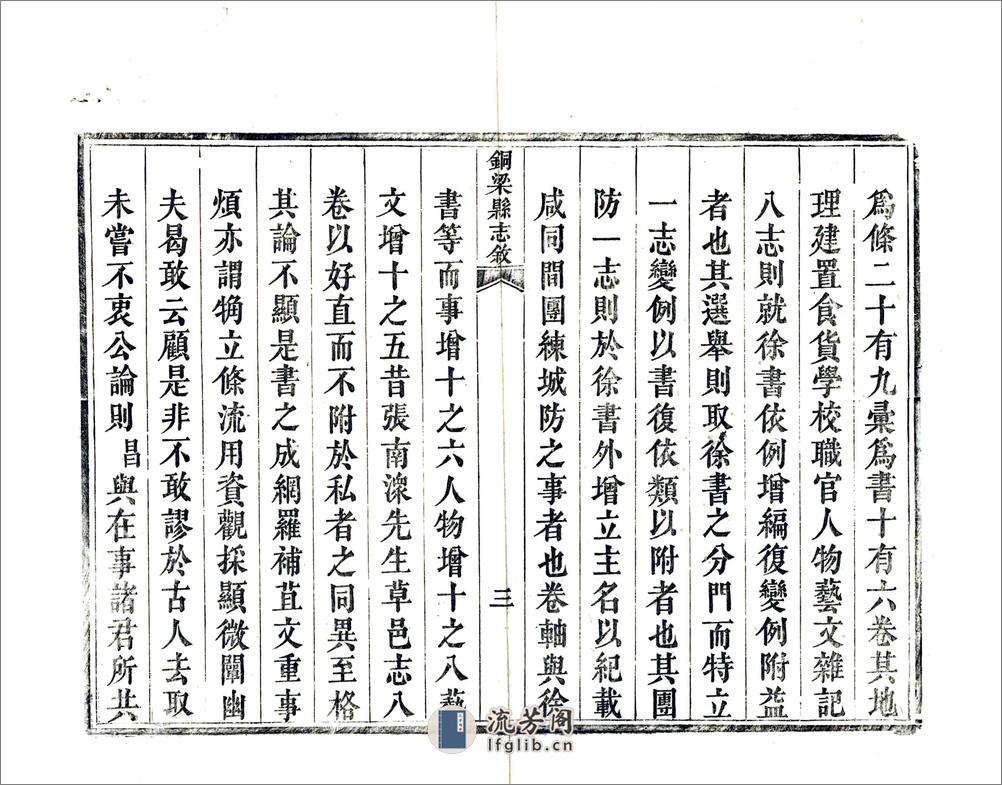 爲條二十有九彙爲書十有六卷其地
理建置食貨學校職官人物藝文雜記
八志則就徐書依例增編復變例附益
者也其選舉則取徐書之分門而特立
一志變例以書復依類以附者也其團
防一志則於徐書外增立主名以紀載
咸同間團練城防之事者也卷軸與徐
銅梁縣志敘
三
書等而事增十之六人物增十之八藝
文增十之五昔張南溁先生草邑志八
卷以好直而不附於私者之同異至格
其論不顯是書之成網羅補苴文重事
煩亦謂觕立條流用資觀採顯微闡幽
夫曷敢云顧是非不敢謬於古人去取
未嘗不衷公論則昌與在事諸君所共
流芳阁
lfglib.cn